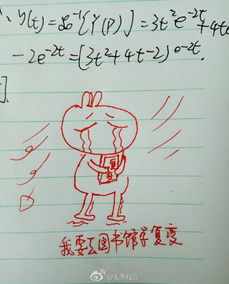 y(t)=ℒ⁻¹{Y(p)}=3t²e⁻²ᵗ+4te
-2e⁻²ᵗ=(3t²+4t-2)e⁻²ᵗ.
我要去图书馆学复变